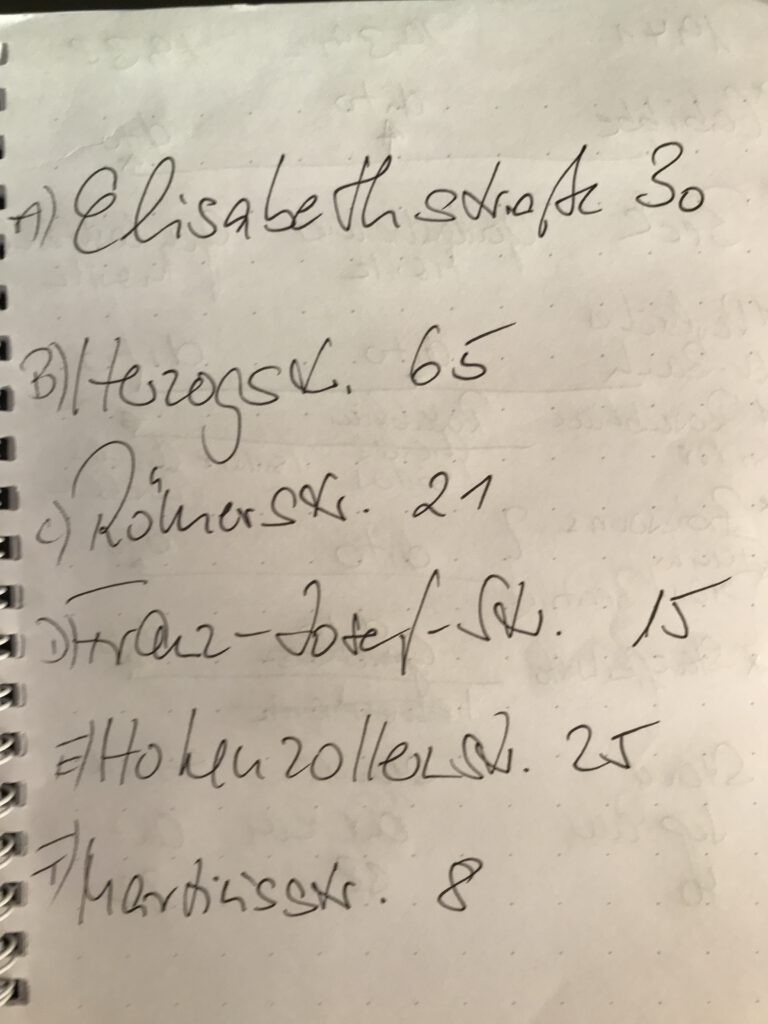 A) Elisabethstraße 30
B) Herzogstr. 65
C) Römerstr. 21
D) Franz-Josef-Str. 15
E) Hohenzollernstr. 25
F) Martiusstr. 8